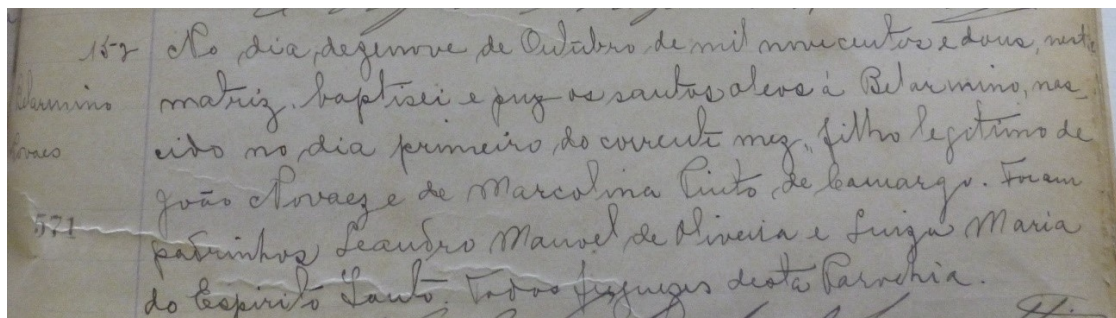 157 No dia dezenove de Outubro de mil novecentos e dous, nesta
Belarmino matriz. baptisei e puz os santos oleos á Belarmino, nas-
Novaes cido no dia primeiro do corrente mez, filho legitimo de
João Novaez e de Marcolina Pinto de Camargo. Foram
571 padrinhos Leandro Manoel de Oliveira e Luiza Maria
do Espirito Santo. Todos freguezes desta Parochia.